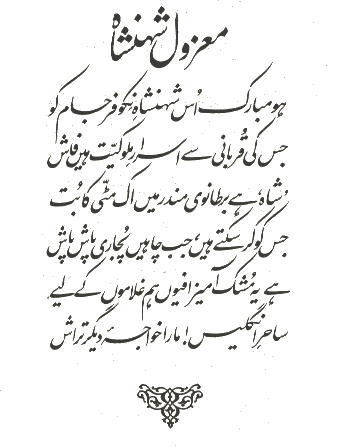 معزول شہنشاہ
ہو مبارک اُس شہنشاہِ نکو فرجام کو
جس کی قُربانی سے اسرارِ ملوکیّت ہیں فاش
'شاہ' ہے برطانوی مندر میں اک مٹّی کا بُت
جس کو کر سکتے ہیں، جب چاہیں پُجاری پاش پاش
ہے یہ مُشک آمیز افیوں ہم غلاموں کے لیے
ساحرِ انگلیس! مارا خواجۂ دیگر تراش